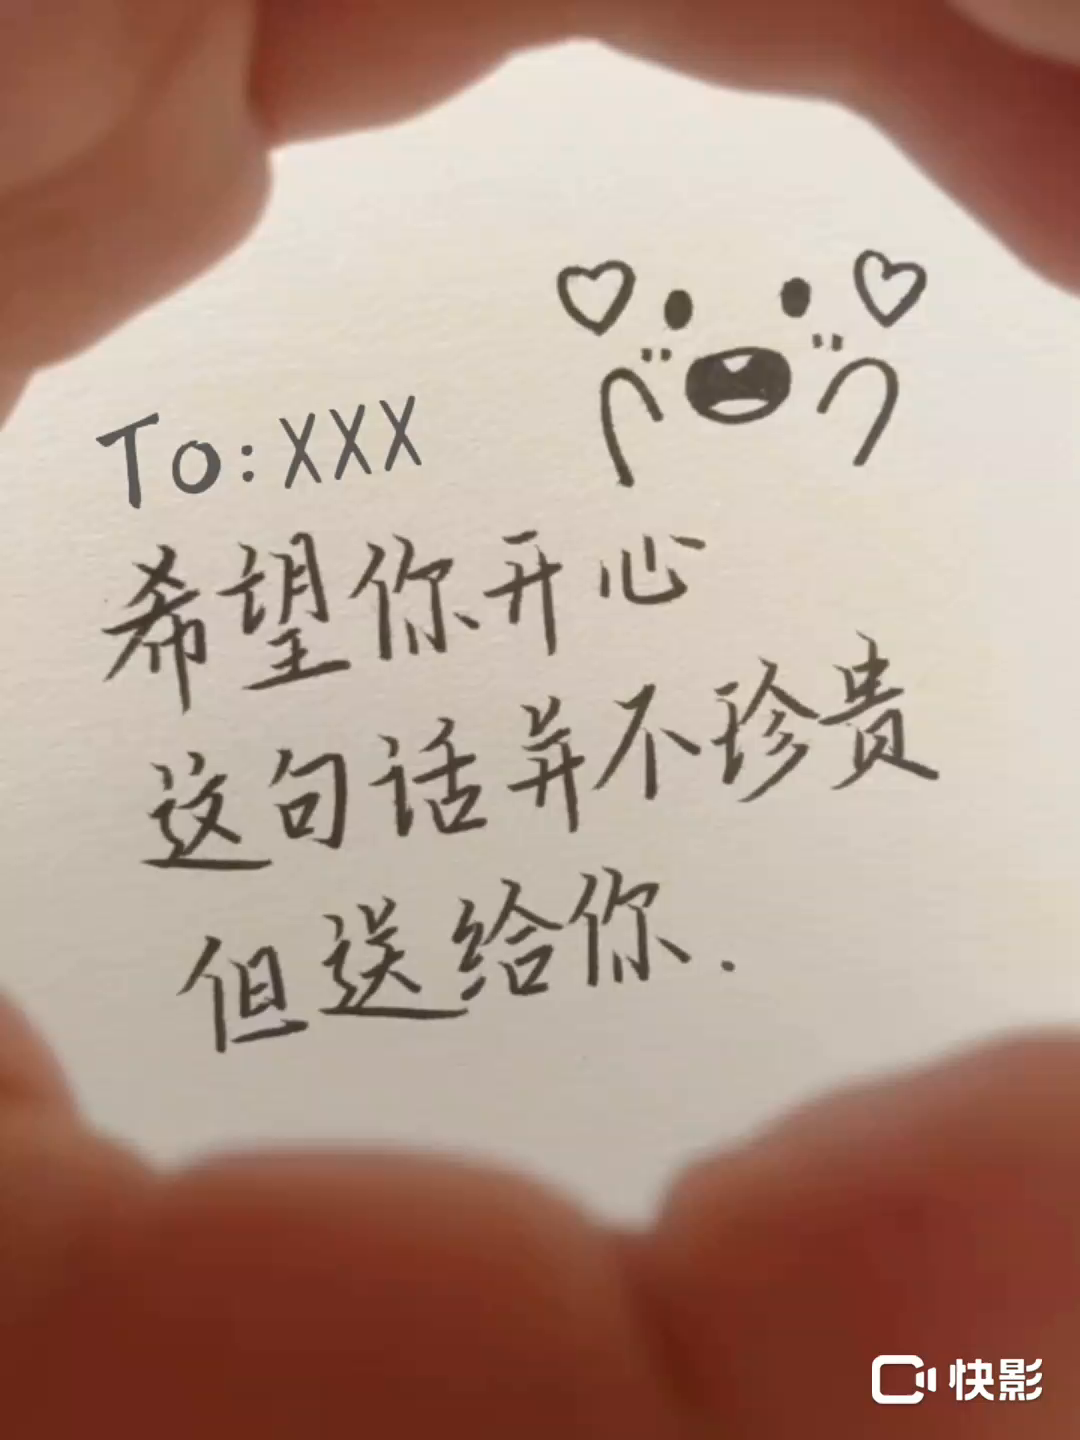 To:XXX
希望你开心
这句话并不珍贵
但送给你.
快影